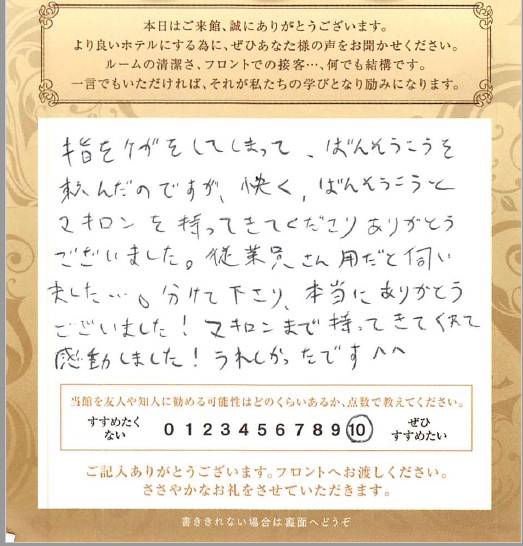 本日はご来館、誠にありがとうございます。
より良いホテルにする為に、ぜひあなた様の声をお聞かせください。
ルームの清潔さ、フロントでの接客…、何でも結構です。
一言でもいただければ、それが私たちの学びとなり励みになります。
指をケガをしてしまって、ばんそうこうを
頼んだのですが、快く、ばんそうこうと
マキロンを持ってきてくださりありがとう
ございました。従業員さん用だと伺い
ました…。分けて下さり、本当にありがとう
ございました！マキロンまで持ってきてくれて
感動しました！うれしかったです^^
当館を友人や知人に勧める可能性はどのくらいあるか、点数で教えてください。
すすめたくない 0 1 2 3 4 5 6 7 8 9 10 ぜひすすめたい
ご記入ありがとうございます。フロントへお渡しください。
ささやかなお礼をさせていただきます。
書ききれない場合は裏面へどうぞ